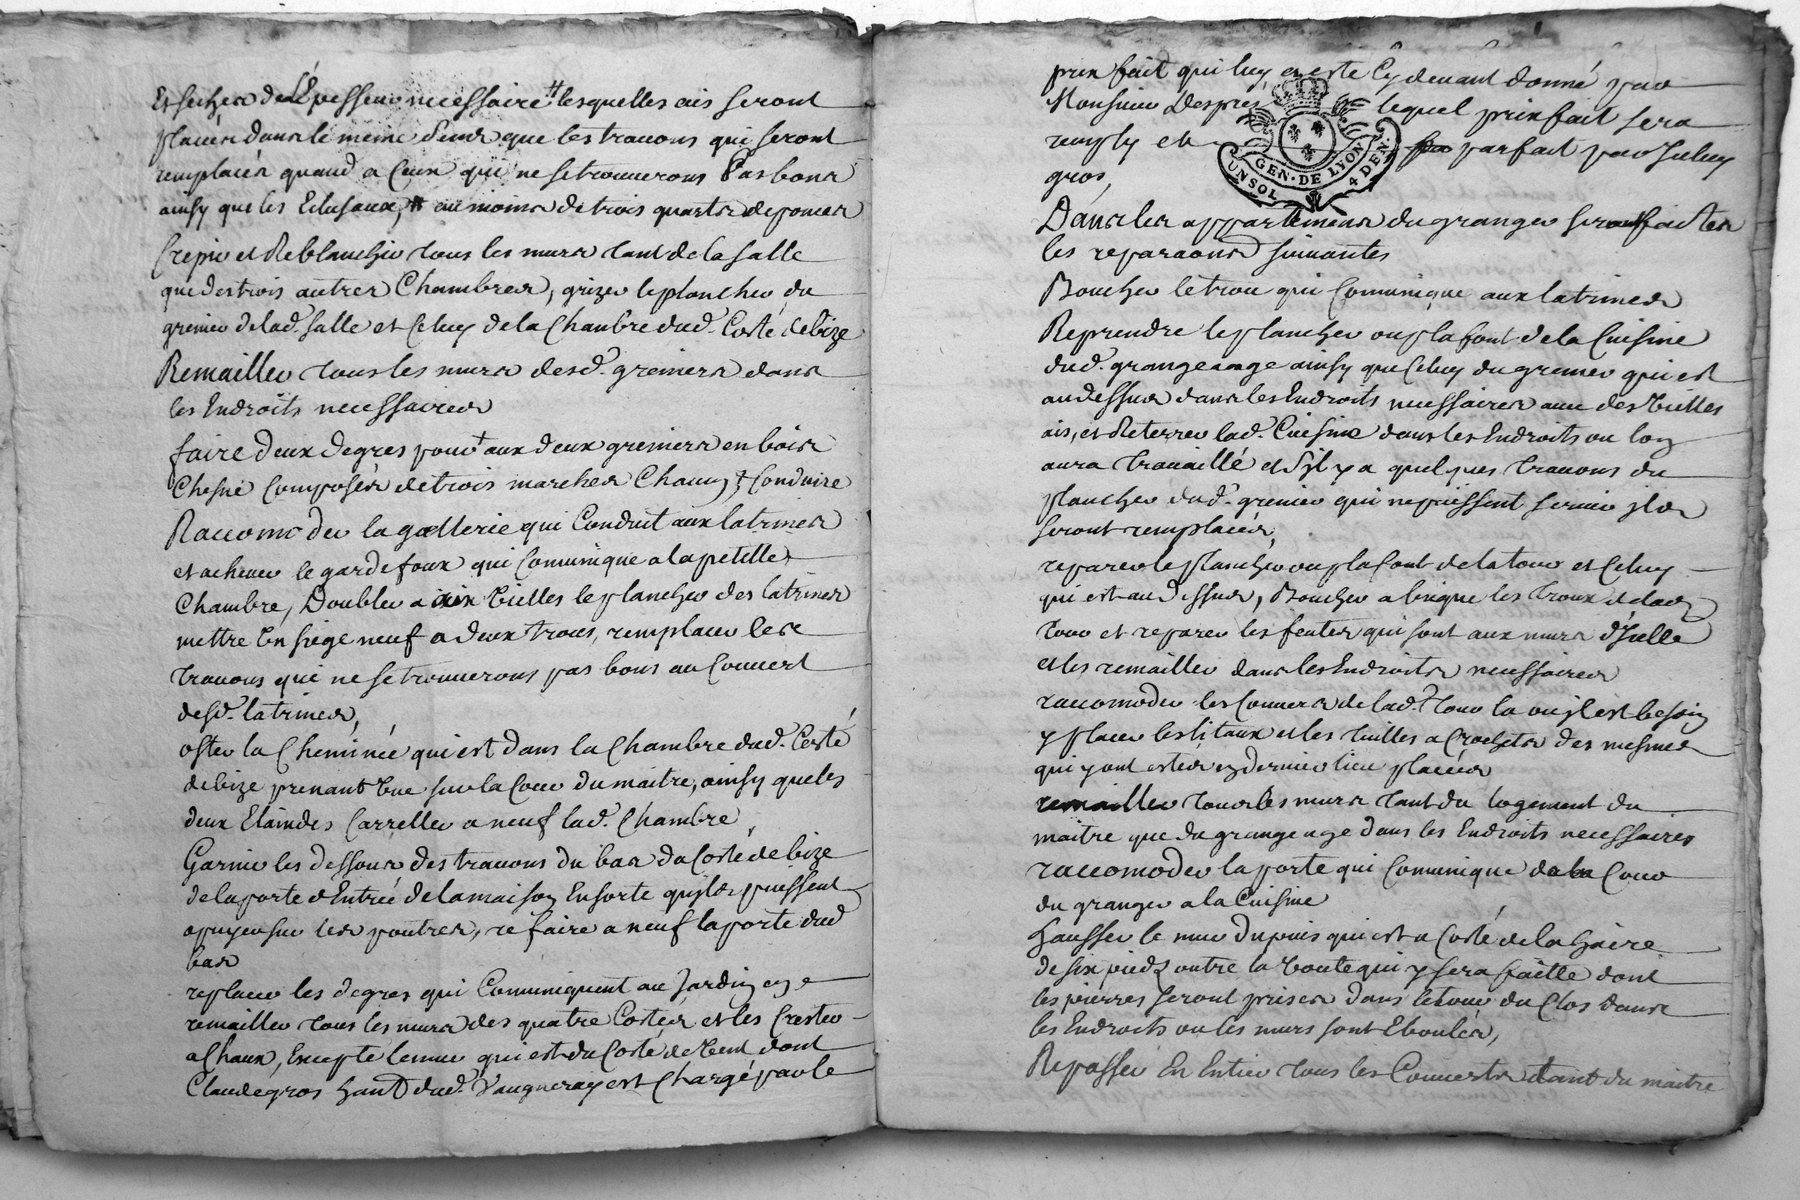 Et seches de L'Epesseur necessaire # lesquelles ais seront
placés dans le meme sens que les travons qui seront
remplacés quand a Ceux qui ne se trouverons Pas bons
ainsy que les # au moins de trois quarts de pouces
Crepir et Reblanchir tous les murs tant de la salle
que des trois autres Chambres, grizer le plancher du
grenier de lad. salle et Celuy de la Chambre dud. Costé de bize
Remailler tous les murs desd. greniers dans
les Endroits necessaires
faire deux degres pour aux deux greniers en bois
Chesne Composés de trois marches Chacun Conduire
Raccomoder la gallerie qui Conduit aux latrines
et achever le gardefoux qui Comunique a la petitte
Chambre, Doubler a aix vielles le plancher des latrines
mettre un siege neuf a deux trous, remplacer les
travons qui ne se trouverons pas bons au Couvert
desd. latrines,
oster la Cheminée qui est dans la Chambre dud. Costé
de bize prenant vue sur la Cour du maitre, ainsy que les
deux Carreller a neuf lad. Chambre
Garnir les dessous des travons du bas du Costé de bize
de la porte d'Entrée de la maison En sorte quils puissent
apuyer sur les poutres, refaire a neuf la porte dud
bas
replacer les degres qui Comuniquent au Jardin
remailler tous les murs des quatre Costés et les Crester
a Chaux, Excepté le mur qui est du Costé de vent dont
Claude gros dud. Vaugneray est Chargé par le
prix fait qui luy en este Cy devant donné par
Monsieur Despres lequel prix fait sera
remply et parfait par Ieluy
gros,
Dans les appartemens du granger seront faites
les reparaons suivantes
Boucher le trou qui Comunique aux latrines
Reprendre le plancher ou plafont de la Cuisine
dud. grangeage ainsy que Celuy du grenier qui est
au dessus dans les Endroits necessaires avec des vielles
ais, et Reterrer lad. Cuisine dans les Endroits ou lon
aura travaillé et s'il y a quelques travons du
plancher dud. grenier qui ne puissent servir ils
seront remplacés,
reparer le plancher ou plafont de la tour et Celuy
qui est au dessus, Boucher a brique les troux de lad.
tour et reparer les fentes qui sont aux murs d'Icelle
et les remailler dans les Endroits necessaires
raccomoder les Couverts de lad. tour la ou il est besoin
y placer les litaux et les tuilles a Crochets des mesmes
qui y ont estés en dernier lieu placées
remailler tous les murs tant du logement du
maitre que du grangeage dans les Endroits necessaires
raccomoder la porte qui Comunique de la Cour
du granger a la Cuisine
hausser le mur du puis qui est a Costé de la haire
de six pieds outre la voute qui y sera faitte dont
les pierres seront prises dans le tour du Clos dans
les Endroits ou les murs sont Eboulés,
Repasser En Entier tous les Couverts tant du maitre
GEN. DE LYON
UN SOL 4 DEN.